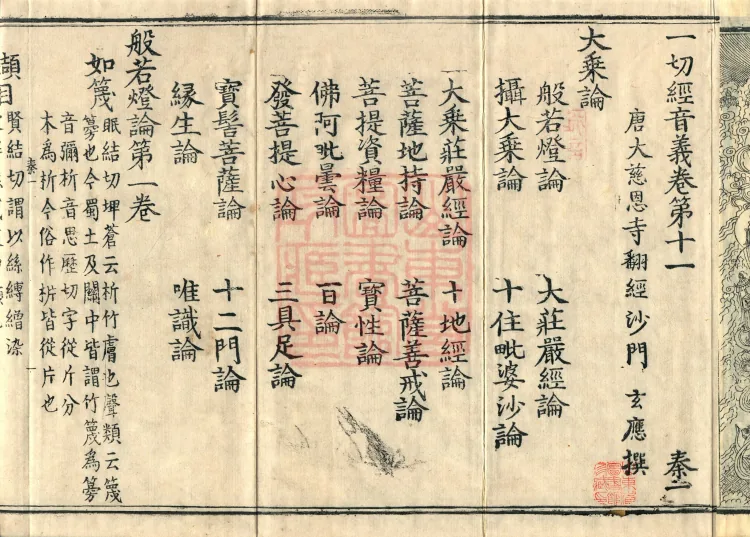 一切經音義卷第十一 秦二
唐大慈恩寺翻經沙門 玄應撰
大乘論
般若燈論 大莊嚴經論
攝大乘論 十住毗婆沙論
大乘莊嚴經論 十地經論
菩薩地持論 菩薩善戒論
菩提資糧論 寶性論
佛阿毗曇論 百論
發菩提心論 三具足論
寶髻菩薩論 十二門論
緣生論 唯識論
般若燈論第一卷
如篾 眠結切埤蒼云析竹膚也聲類云篾
篣也今蜀土及關中皆謂竹篾為篣
音彌析音思歷切字從斤分
木為析今俗作皆從片也
秦一
纈目 賢結切謂以絲縛繒染